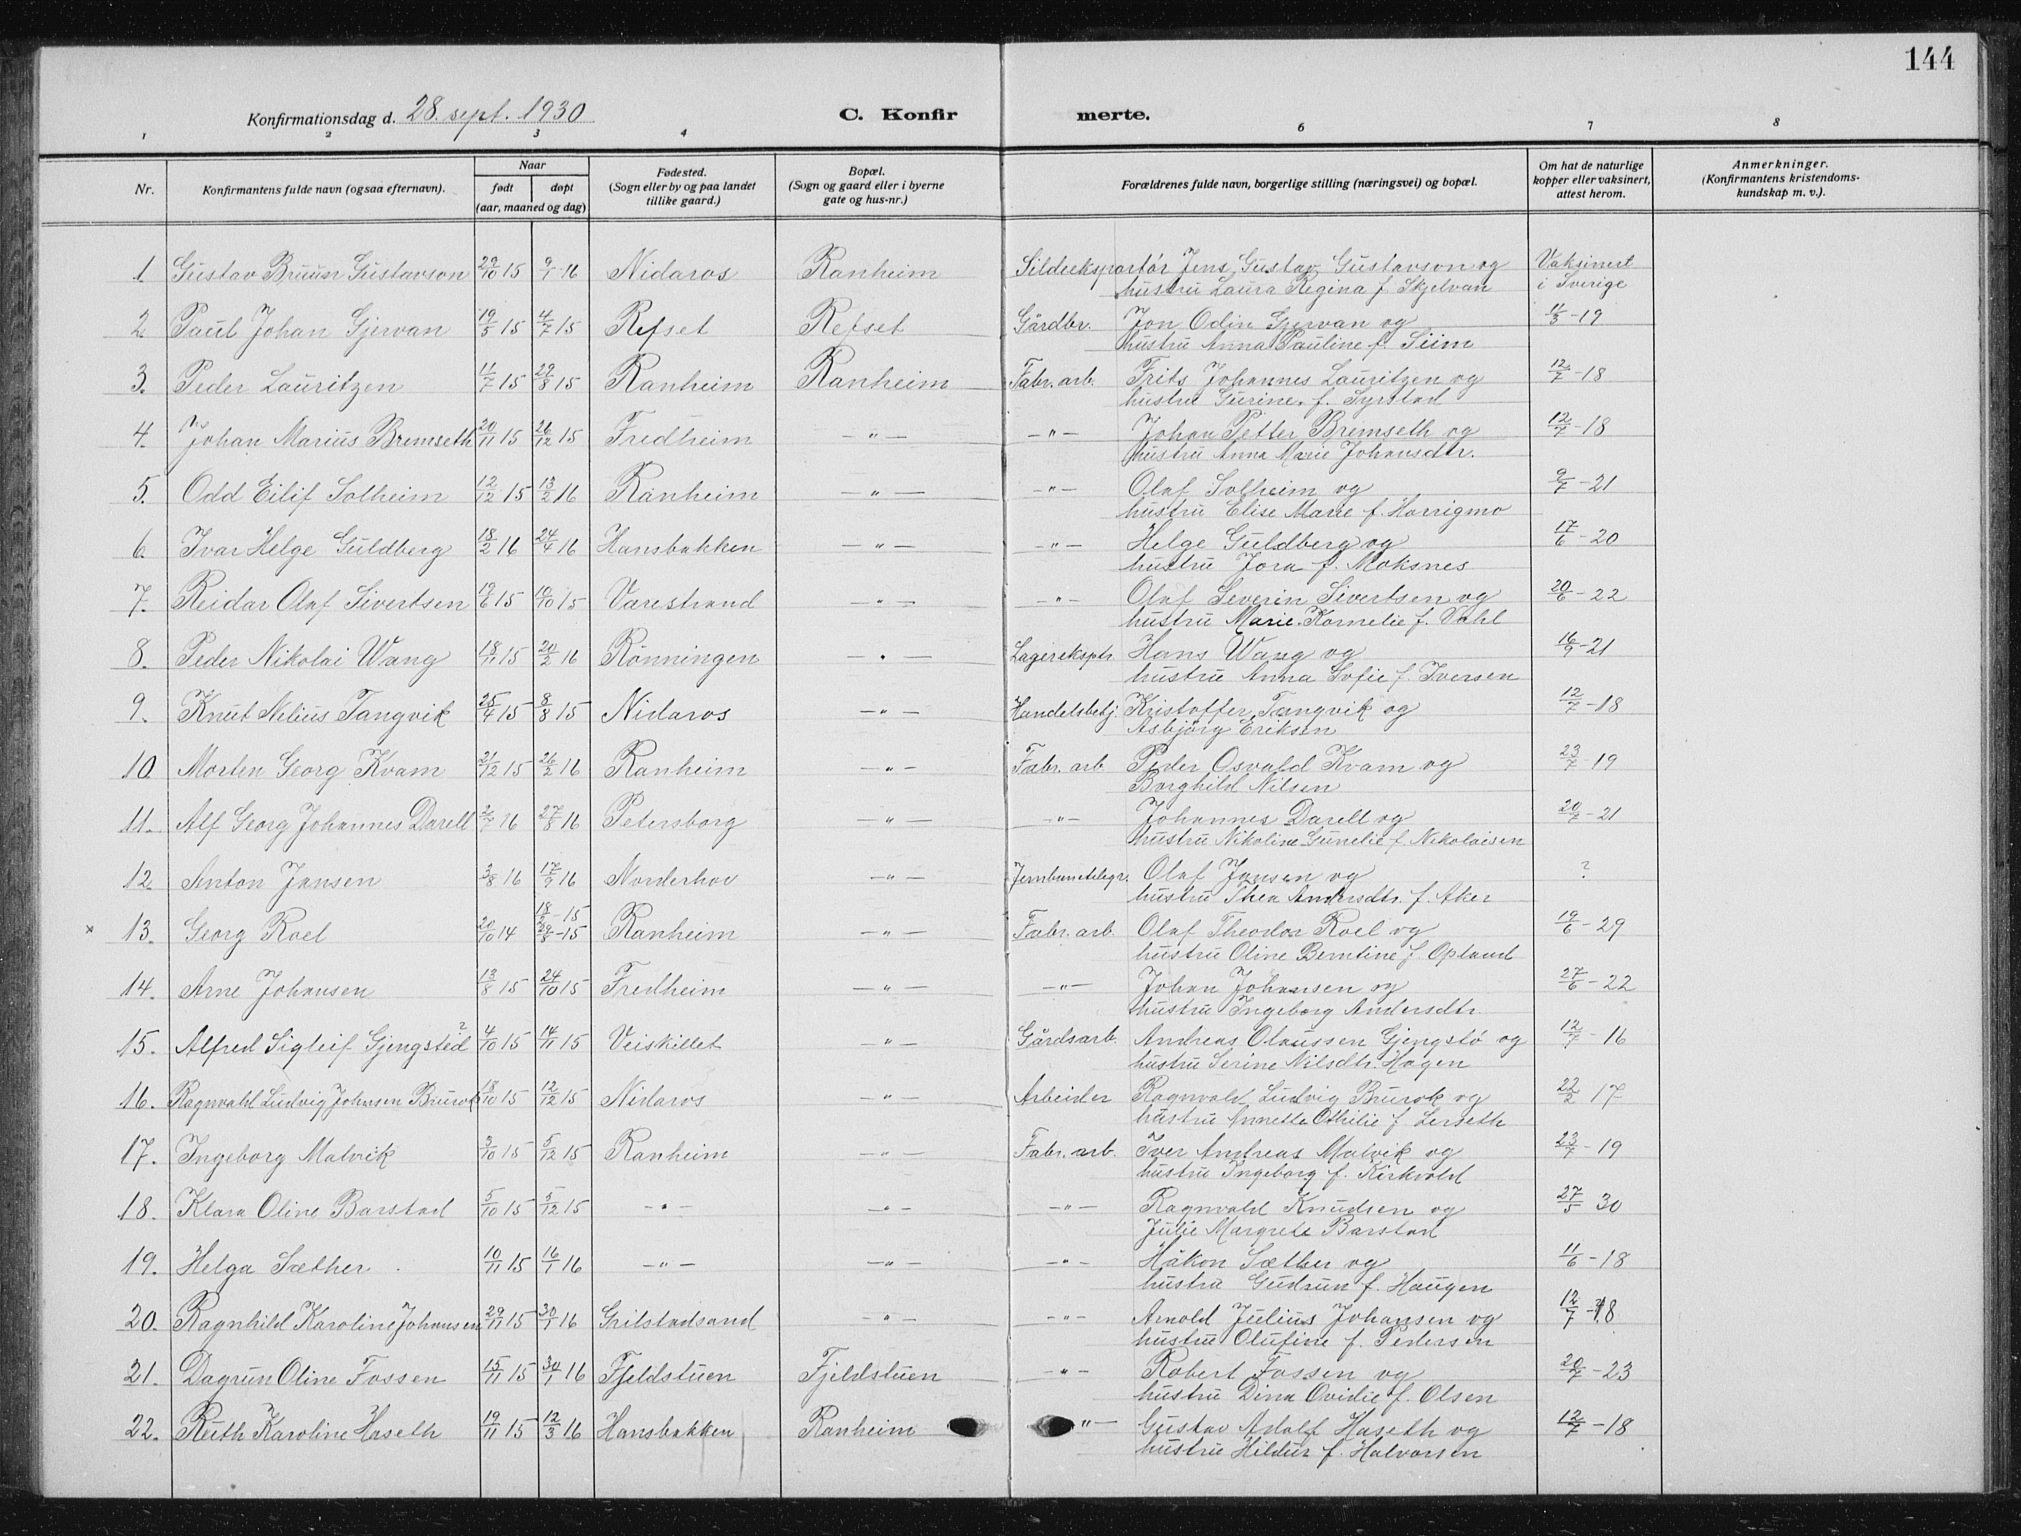 144
Konfirmationsdag d. 28. sept. 1930 C. Konfir merte.
1 2 3 4 5 6 7 8
Nr. Konfirmantens fulde navn (ogsaa efternavn). Naar født døpt (aar, maaned og dag) Fødested. (Sogn eller by og paa landet tillike gaard.) Bopæl. (Sogn og gaard eller i byerne gate og hus-nr.) Forældrenes fulde navn, borgerlige stilling (næringsvei) og bopæl. Om hat de naturlige kopper eller vaksinert, attest herom. Anmerkninger. (Konfirmantens kristendomskundskap m. v.).
1 Gustav Bruun Gustavson 29/10 15 9/1-16 Nidaros Ranheim Sildeeksportør Jens Gustav Gustavson og Vaksinert
hustru Laura Regina f. Skjelvan i Sverige
2 Paul Johan Gjervan 19/5 15 4/7 15 Refset Refset Gårdbr. Jon Odin Gjervan og 11/3-19
hustru Anna Pauline f. Siim
3. Peder Lauritzen 11/7 15 29/8 15 Ranheim Ranheim Fabr. arb. Frits Johannes Lauritzen og 12/7-18
hustru Gurine f. Syrstad
4. Johan Marius Bremseth 20/11 15 26/12 15 Fredheim —"— —"— Johan Petter Bremseth og 12/7-18
hustru Anna Marie Johansdtr.
5. Odd Eilif Solheim 12/12 15 13/2 16 Ranheim —"— —"— Olaf Solheim og 9/7-21
hustru Elise Marie f. Horrigmo
6. Ivar Helge Guldberg 18/2 16 24/4 16 Hansbakken —"— —"— Helge Guldberg og 17/6-20
hustru Jora f. Moksnes
7. Reidar Olaf Sivertsen 19/6 15 10/10 15 Varestrand —"— —"— Olaf Severin Sivertsen og 20/6-22
hustru Marie Kornelie f. Vahl
8. Peder Nikolai Wang 18/11 15 20/2 16 Rönningen —"— Lagerekspdr. Hans Wang og 16/9-21
hustru Anna Sofie f. Iversen
9. Knut Nilius Tangvik 25/4 15 8/8 15 Nidaros —"— Handelsbetj. Kristoffer Tangvik og 12/7-18
Asbjörg Eriksen
10. Morten Georg Kvam 21/12 15 26/2 16 Ranheim —"— Fabr. arb. Peder Osvald Kvam og 23/7-19
Borghild Nilsen
11. Alf Georg Johannes Darell 2/7 16 27/8 16 Petersborg —"— —"— Johannes Darell og 20/7-21
hustru Nikoline Gunelie f. Nikolaisen
12. Anton Jansen 3/8 16 17/9 16 Norderhov —"— Jernbanetelegr. Olaf Jansen og ?
hustru Thea Andersdtr. f. Aker
18/-15
× 13. Georg Roel 20/10 14 29/8-15 Ranheim —"— Fabr. arb. Olaf Theodor Roel og 19/6-29
hustru Oline Berntine f. Opland
14. Arne Johansen 13/8 15 24/10 15 Fredheim —"— —"— Johan Johansen og 27/6-22
hustru Ingeborg Andersdtr.
15. Alfred Sigleif Gjengsted ? 4/10 15 14/11 15 Veiskillet —"— Gårdsarb. Andreas Olaussen Gjengstö og 12/7-16
hustru Serine Nilsdtr. Hagen
16. Ragnvald Ludvig Johnsen Brurok 18/10 15 12/12 15 Nidaros —"— Arbeider Ragnvald Ludvig Brurok og 22/2 17
hustru Annette Othilie f. Lerseth
17. Ingeborg Malvik 3/10 15 5/12 15 Ranheim —"— Fabr. arb. Iver Andreas Malvik og 23/7-19
hustru Ingeborg f. Kirkvold
18. Klara Oline Barstad 5/10 15 5/12 15 —"— —"— —"— Ragnvald Knudsen og 27/5 30
Julie Margrete Barstad
19. Helga Sæther 10/11 15 16/1 16 —"— —"— —"— Håkon Sæther og 11/6-18
hustru Gudrun f. Haugen
20. Ragnhild Karoline Johansen 29/11 15 30/1 16 Grilstadsand —"— —"— Arnold Julius Johansen og 12/7-18
hustru Olufine f. Pedersen
21. Dagrun Oline Fossen 15/11 15 30/1 16 Fjeldstuen Fjeldstuen —"— Robert Fossen og 20/7-23
hustru Dina Ovidie f. Olsen
22. Ruth Karoline Haseth 19/11 15 12/3 16 Hansbakken Ranheim "— Gustav Adolf Haseth og 12/7-18
hustru Hildur f. Halvorsen